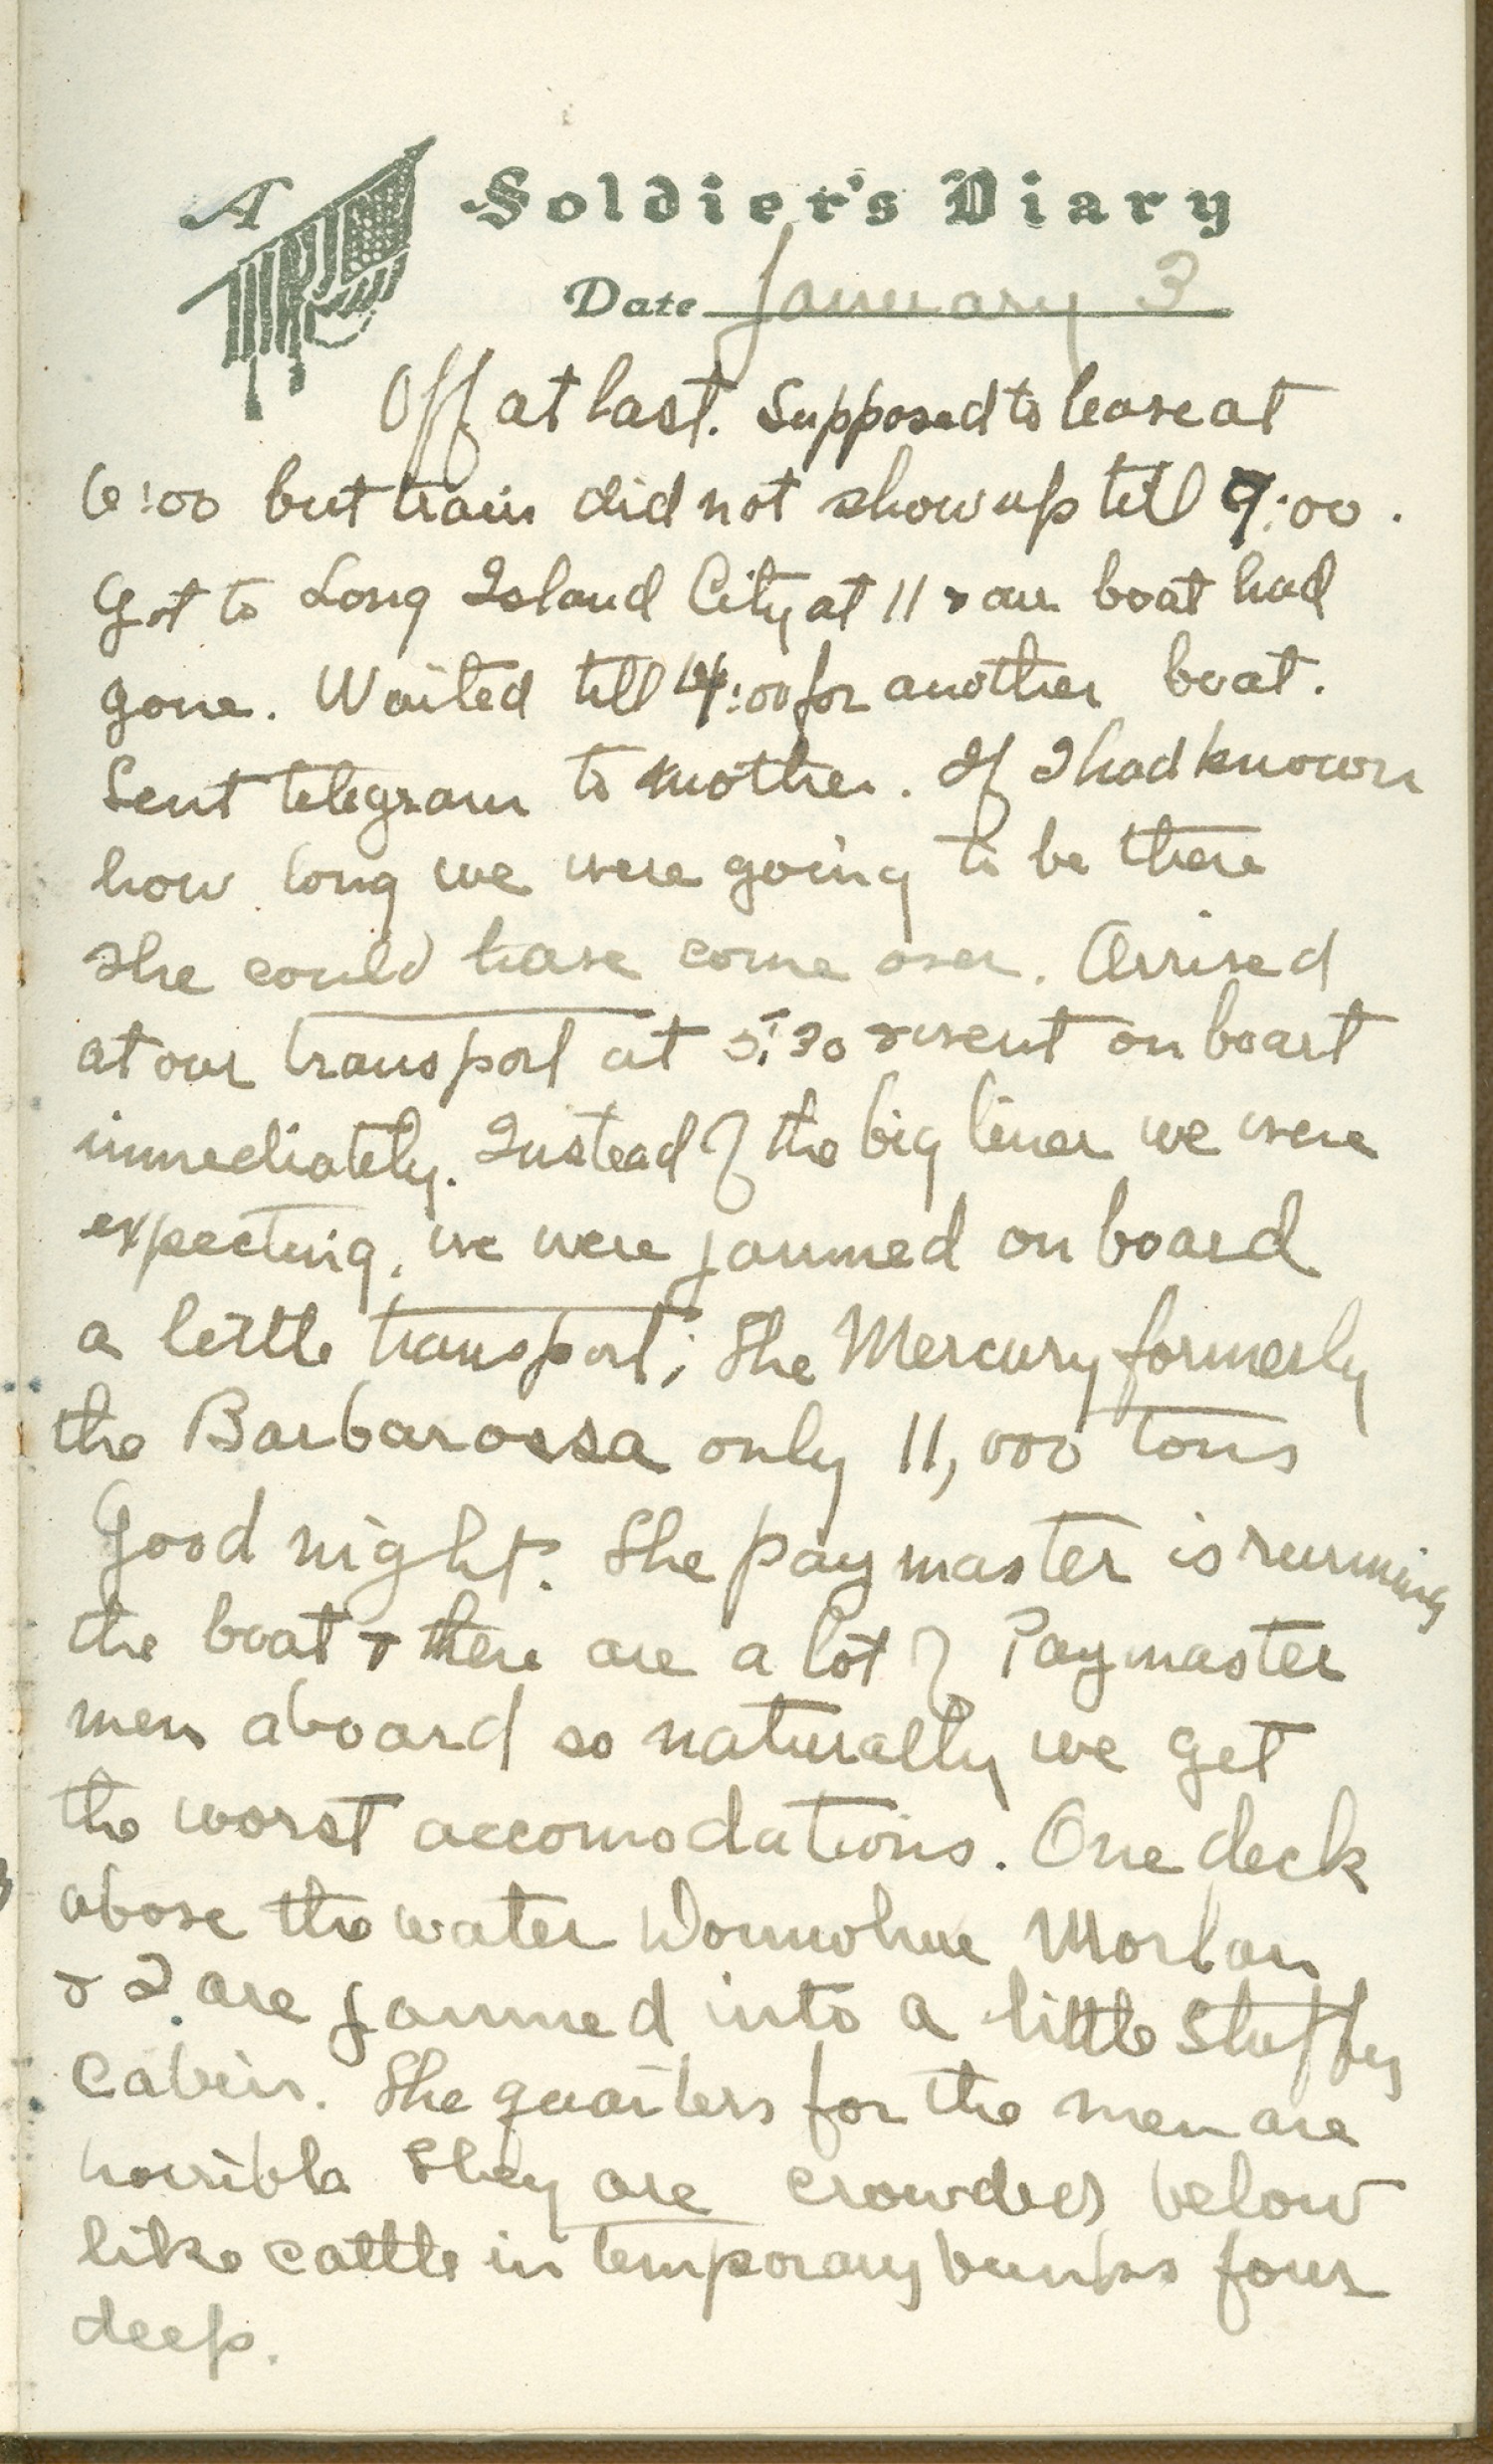 A Soldier's Diary
Date January 3
Off at last. Supposed to leave at
6:00 but train did not show up till 9:00.
Got to Long Island City at 11 & our boat had
gone. Waited till 4:00 for another boat.
Sent telegram to mother. If I had known
how long we were going to be there
she could have come over. Arrived
at our transport at 5:30 & went on board
immediately. Instead of the big liner we were
expecting, we were jammed on board
a little transport; The Mercury formerly
the Barbarossa only 11,000 tons
Good night. The paymaster is running
the boat & there are a lot of Paymaster
men aboard so naturally we get
the worst accomodations. One deck
above the water Donnohue Morlan
& I are jammed into a little stuffy
cabin. The quarters for the men are
horrible They are crowded below
like cattle in temporary bunks four
deep.